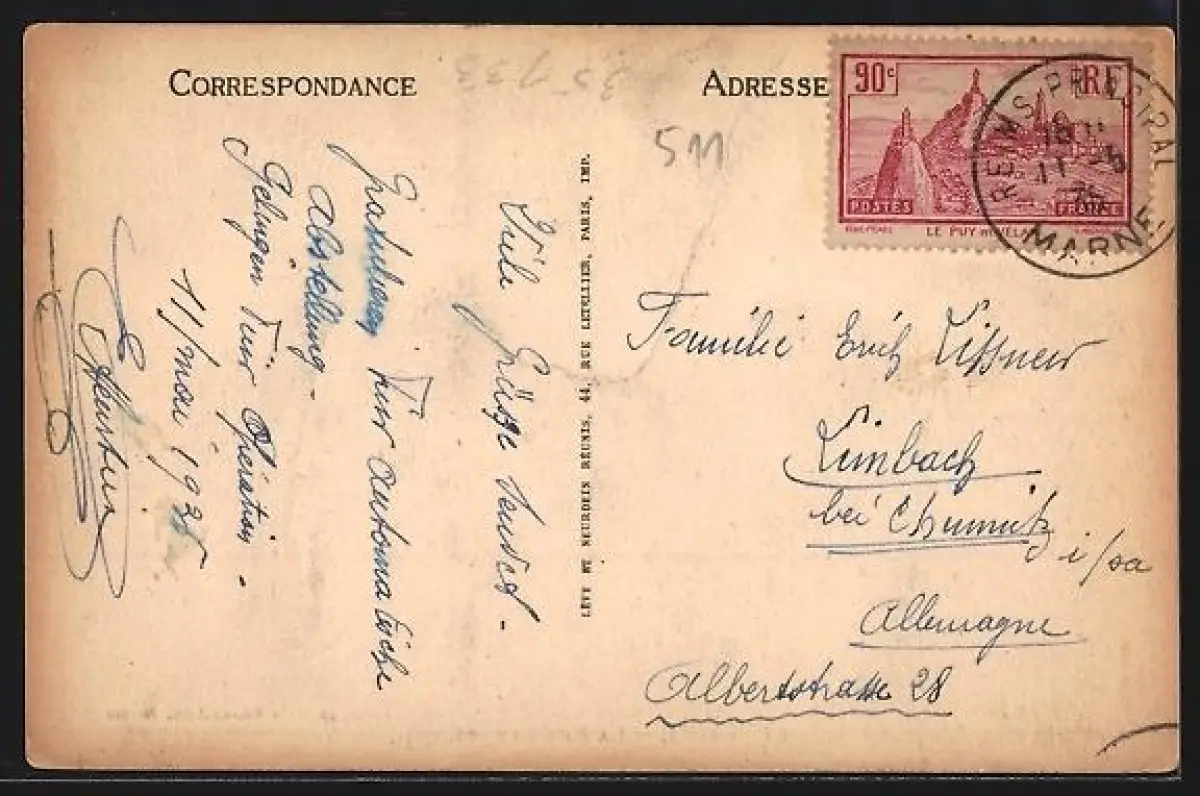 CORRESPONDANCE
ADRESSE
511
90c
RF
POSTES
FRANCE
LE PUY-EN-VELAY
REIMS
MARNE
LÉVY ET NEURDEIN RÉUNIS, 44, RUE LETELLIER, PARIS, IMP.
Viele
Grüsse sendet -
für automatische
Abstellung -
Gelingen für Opération -
11/mai 1935
Familie Erich
Limbach
bei Chemnitz
i/sa
Allemagne
Albertstrasse 28